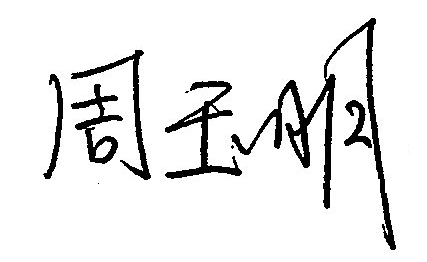 周玉明